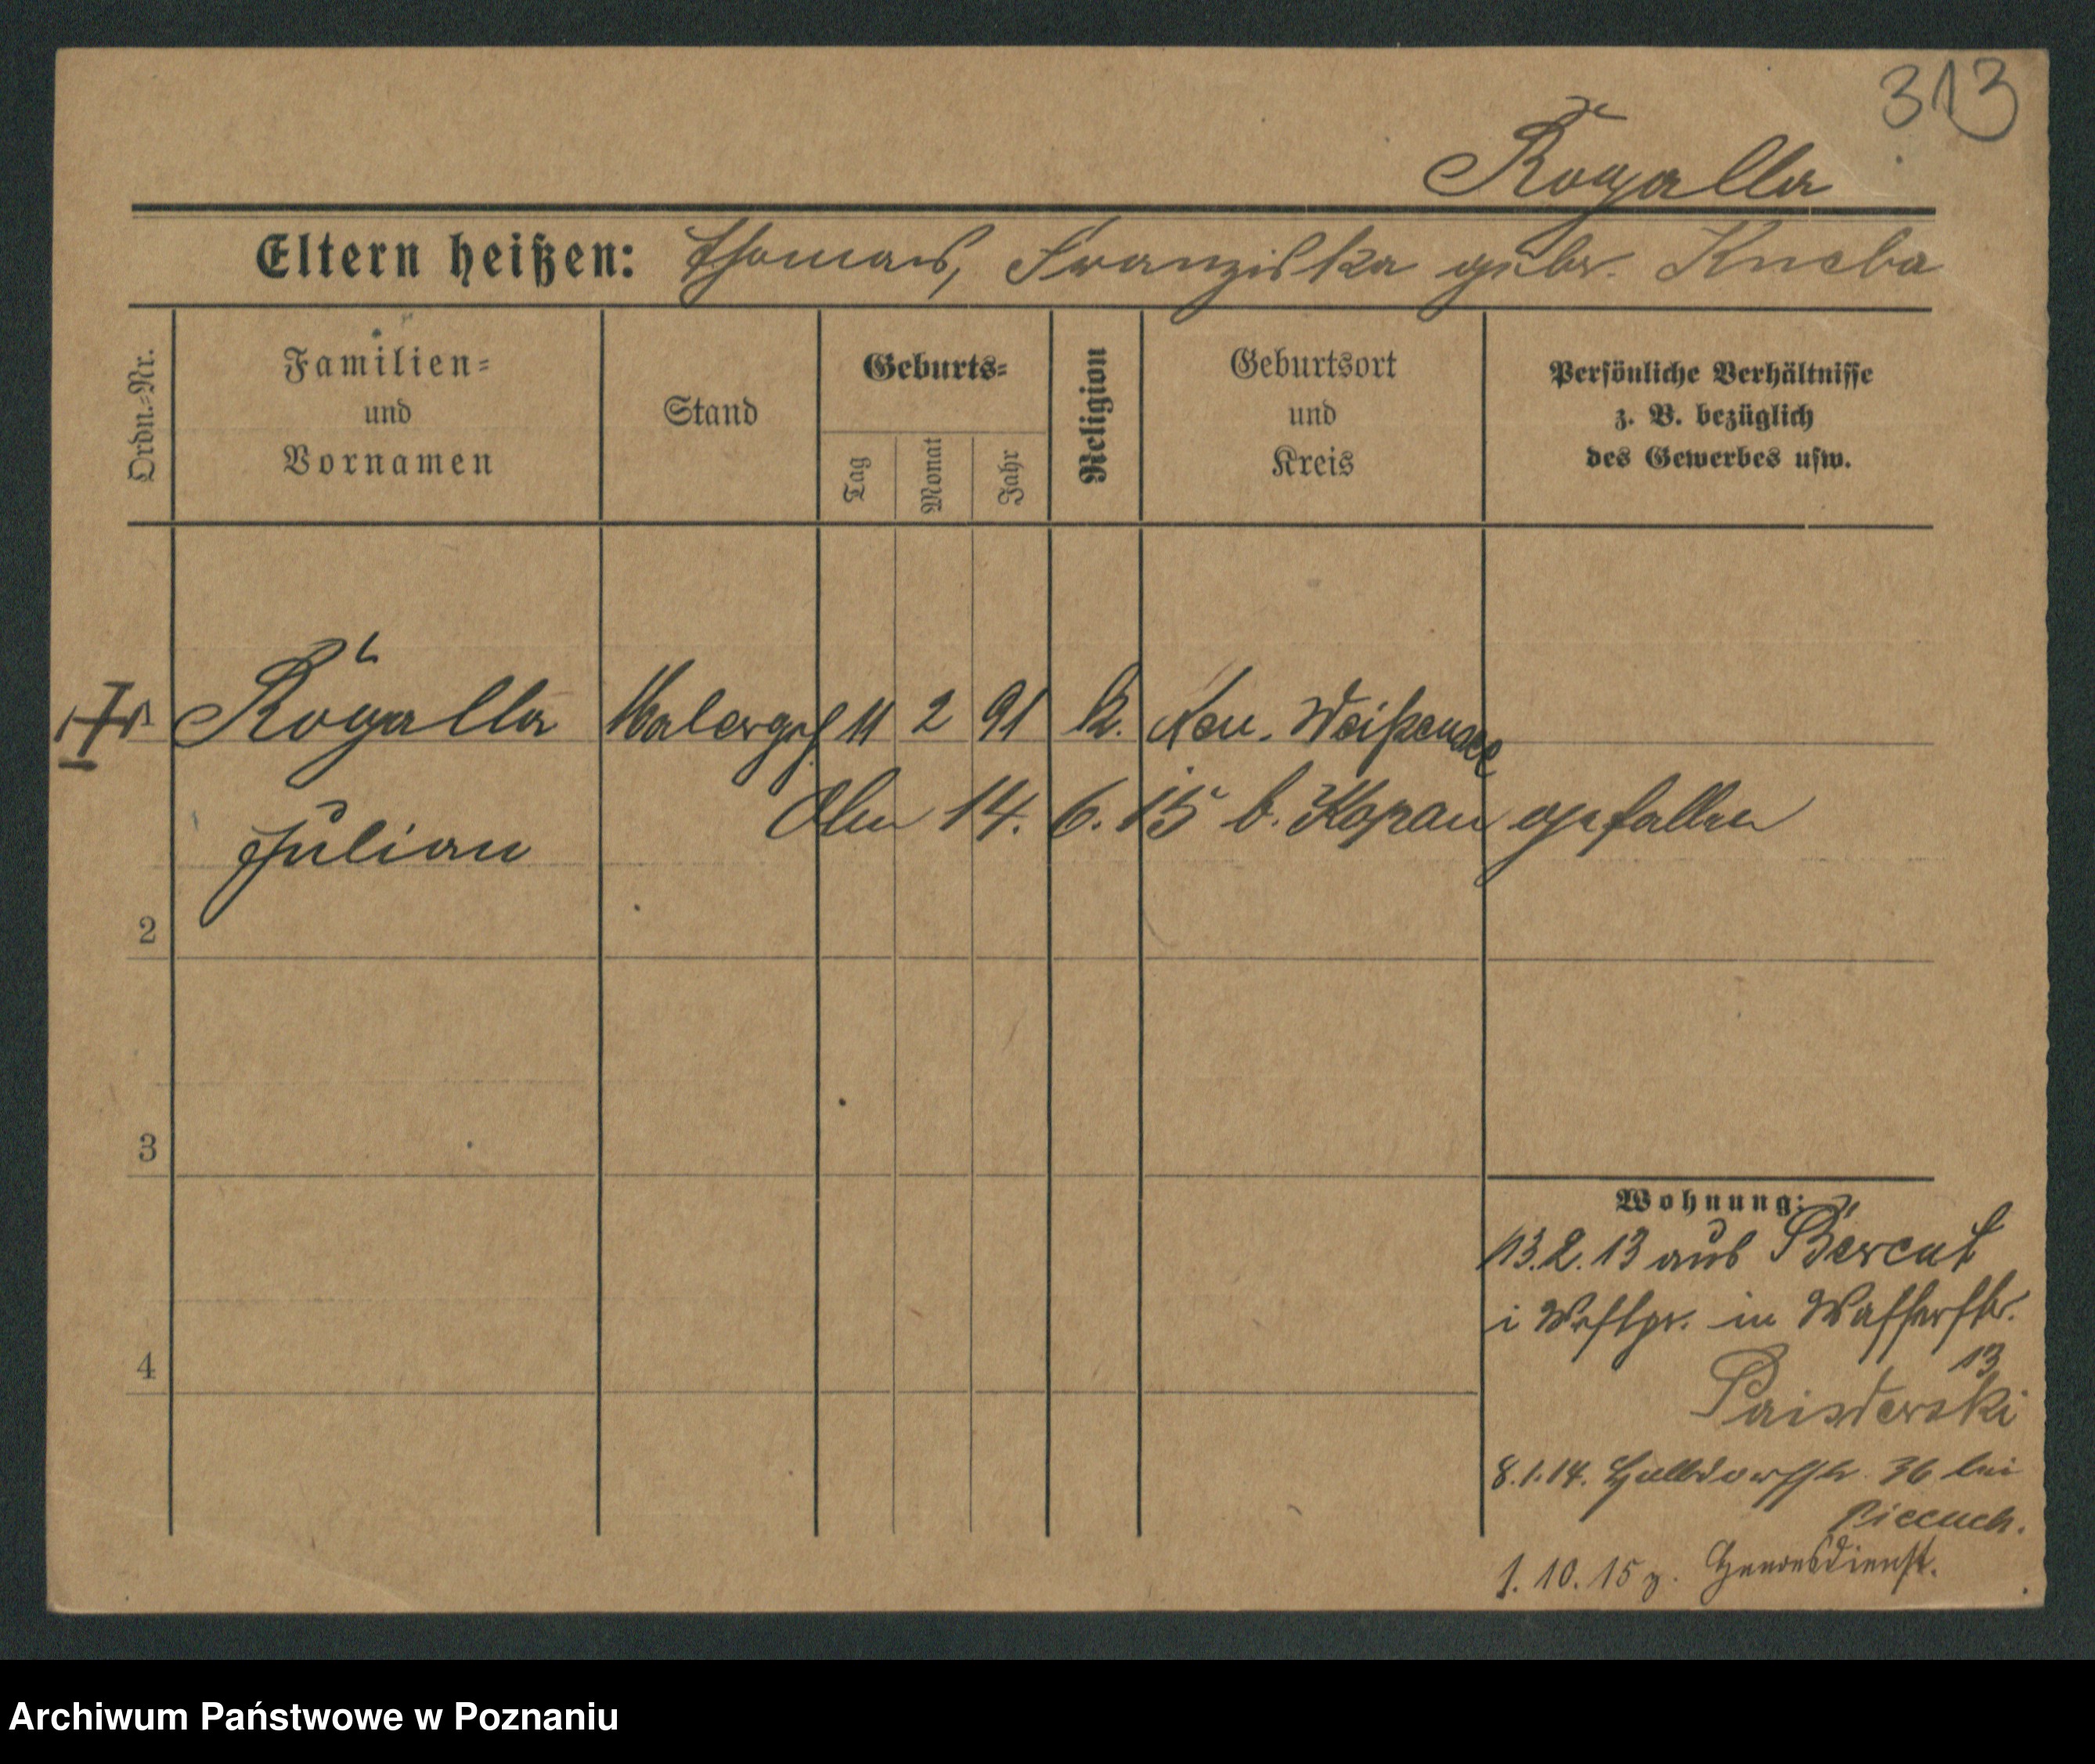 313
Rogalla
Eltern heißen: Thomas, Franziska gebr. Kneba
Ordn.-Nr.
Familien-
und
Vornamen
Stand
Geburts-
Tag
Monat
Jahr
Religion
Geburtsort
und
Kreis
Persönliche Verhältnisse
z. B. bezüglich
des Gewerbes usw.
1 Rogalla Malergeh 11 2 91 k. Neu. Weißensee
Julian
Am 14. 6. 15 b. Kopan gefallen
2
3
4
Wohnung:
13.2.13 aus Berent
i Westpr. in Wasserstr.
13
8.1.14. Halbdorfstr. 36 bei
Piecuch.
1.10.15 z. Heeresdienst.